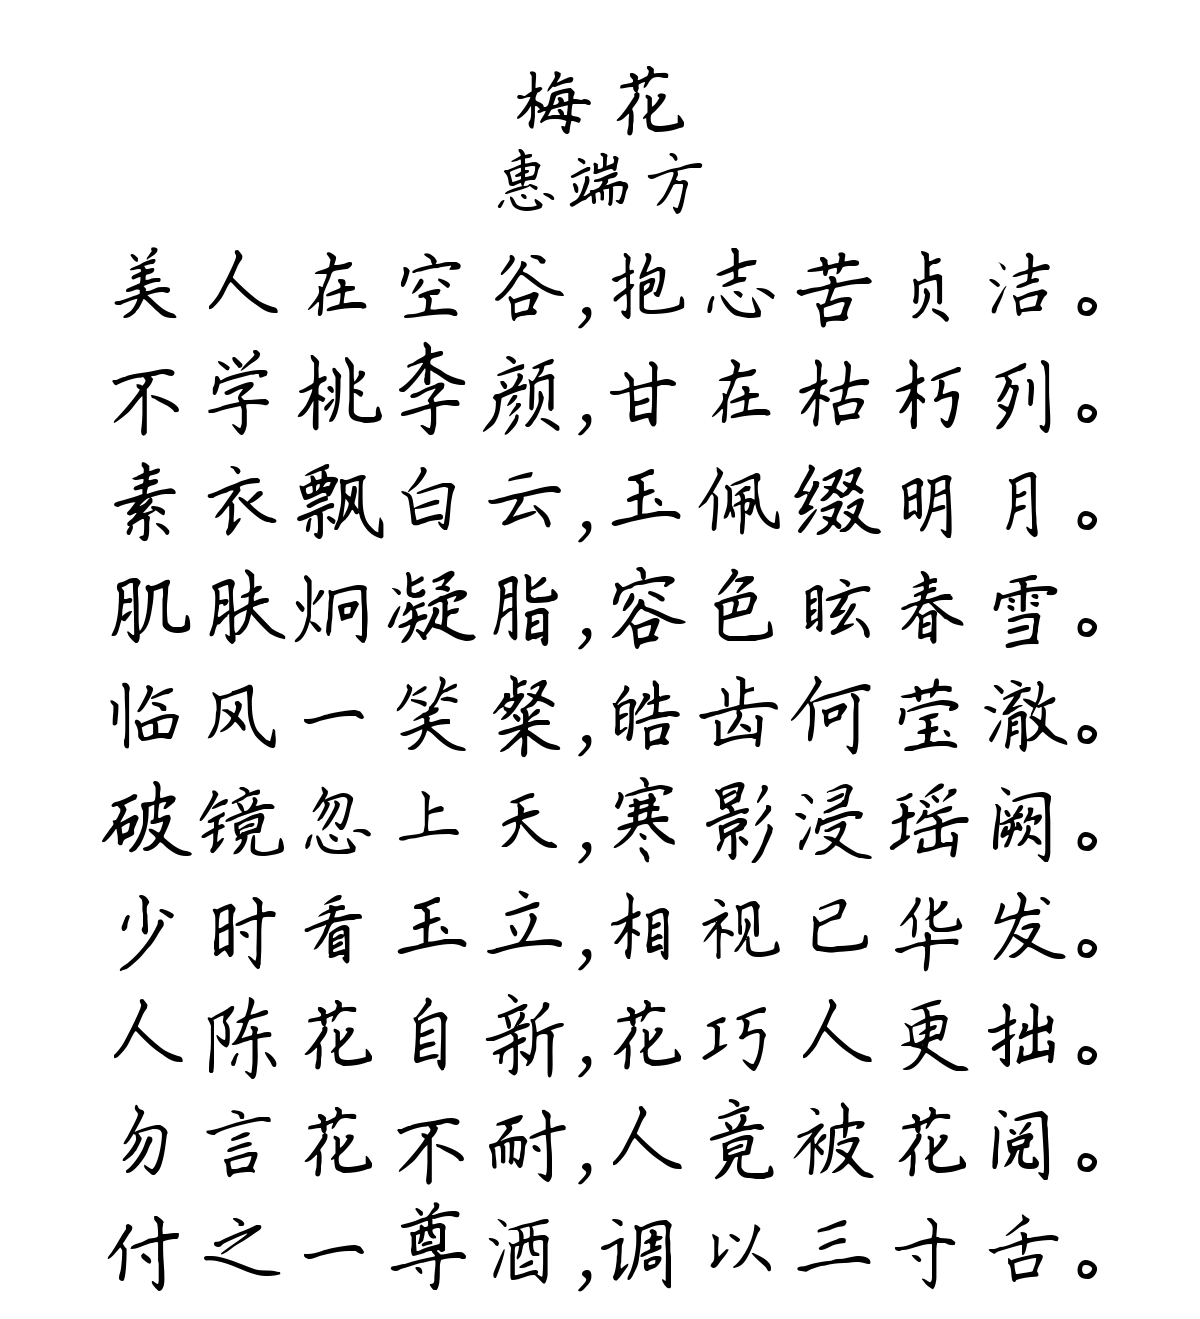 梅花
惠端方
美人在空谷,抱志苦贞洁。
不学桃李颜,甘在枯朽列。
素衣飘白云,玉佩缀明月。
肌肤炯凝脂,容色眩春雪。
临风一笑粲,皓齿何莹澈。
破镜忽上天,寒影浸瑶阙。
少时看玉立,相视已华发。
人陈花自新,花巧人更拙。
勿言花不耐,人竟被花阅。
付之一尊酒,调以三寸舌。